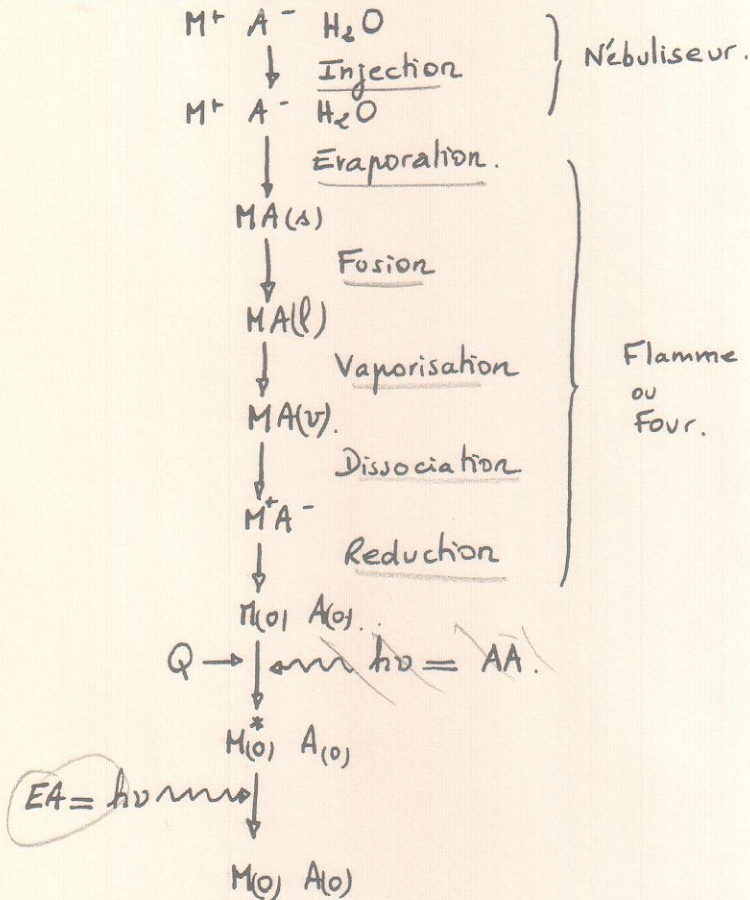 M+ A- H2O
Injection
Nébuliseur.
M+ A- H2O
Evaporation.
MA(s)
Fusion
MA(l)
Vaporisation
Flamme
ou
Four.
MA(v).
Dissociation
M+A-
Reduction
M(o) A(o)..
Q → hν = AA.
M*(o) A(o)
EA = hν
M(o) A(o)